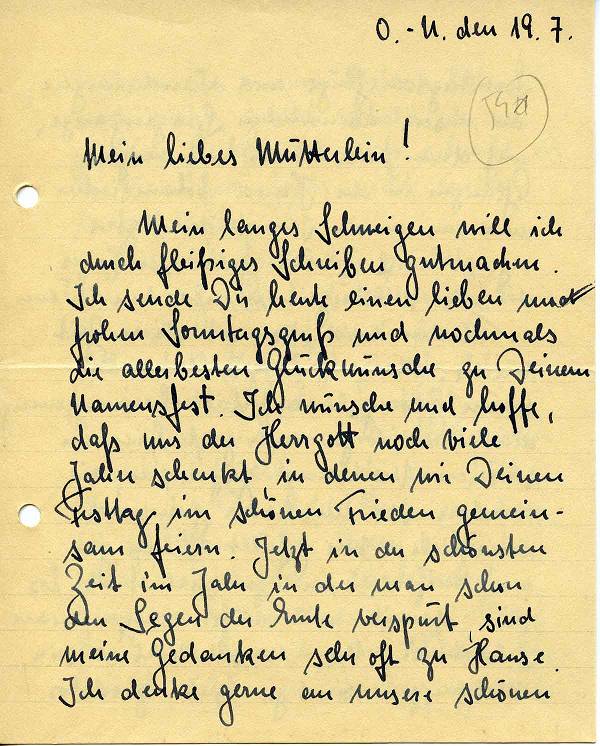 O.-U. den 19. 7.
Mein liebes Mütterlein!
Mein langes Schweigen will ich
durch fleißiges Schreiben gutmachen.
Ich sende Dir heute einen lieben und
frohen Sonntagsgruß und nochmals
die allerbesten Glückwünsche zu Deinem
Namensfest. Ich wünsche und hoffe,
daß uns der Herrgott noch viele
Jahre schenkt, in denen wir Deinen
Festtag im schönen Frieden gemein-
sam feiern. Jetzt in der schönsten
Zeit im Jahr in der man schon
den Segen der Ernte verspürt, sind
meine Gedanken sehr oft zu Hause.
Ich denke gerne an unsere schönen